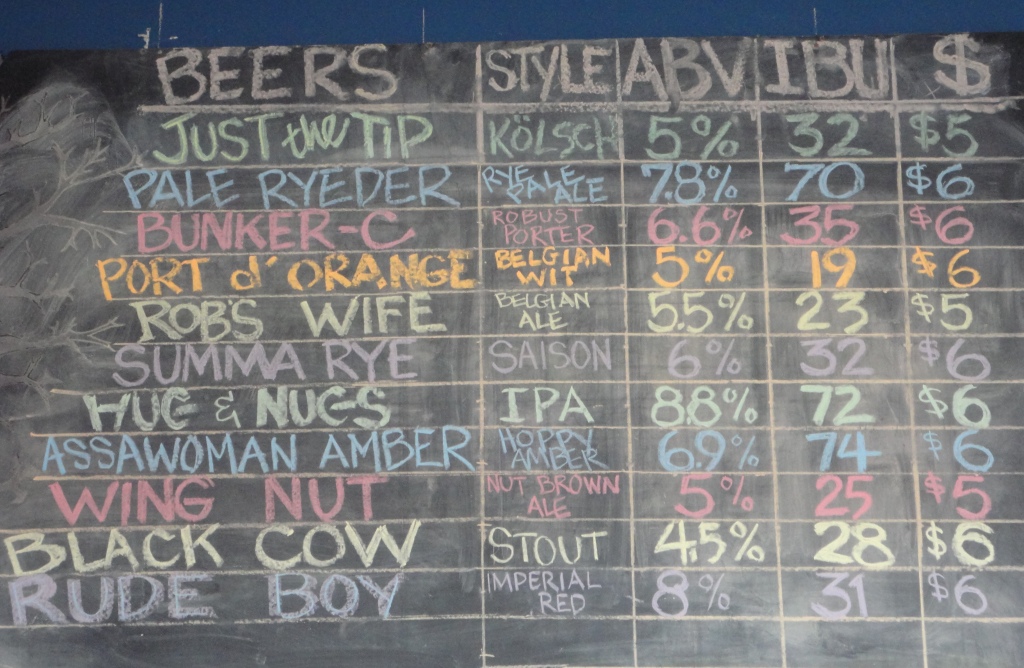 BEERS STYLE ABV IBU $
JUST the TIP KÖLSCH 5% 32 $5
PALE RYEDER RYE PALE ALE 7.8% 70 $6
BUNKER-C ROBUST PORTER 6.6% 35 $6
PORT d'ORANGE BELGIAN WIT 5% 19 $6
ROB'S WIFE BELGIAN ALE 5.5% 23 $5
SUMMA RYE SAISON 6% 32 $6
HUG & NUGS IPA 8.8% 72 $6
ASSAWOMAN AMBER HOPPY AMBER 6.9% 74 $6
WING NUT NUT BROWN ALE 5% 25 $5
BLACK COW STOUT 4.5% 28 $6
RUDE BOY IMPERIAL RED 8% 31 $6